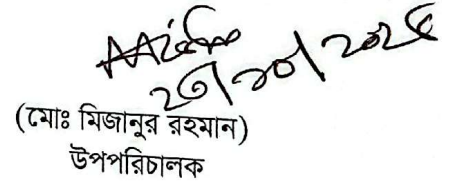 ২৩/১০/২০২৫
(মোঃ মিজানুর রহমান)
উপপরিচালক